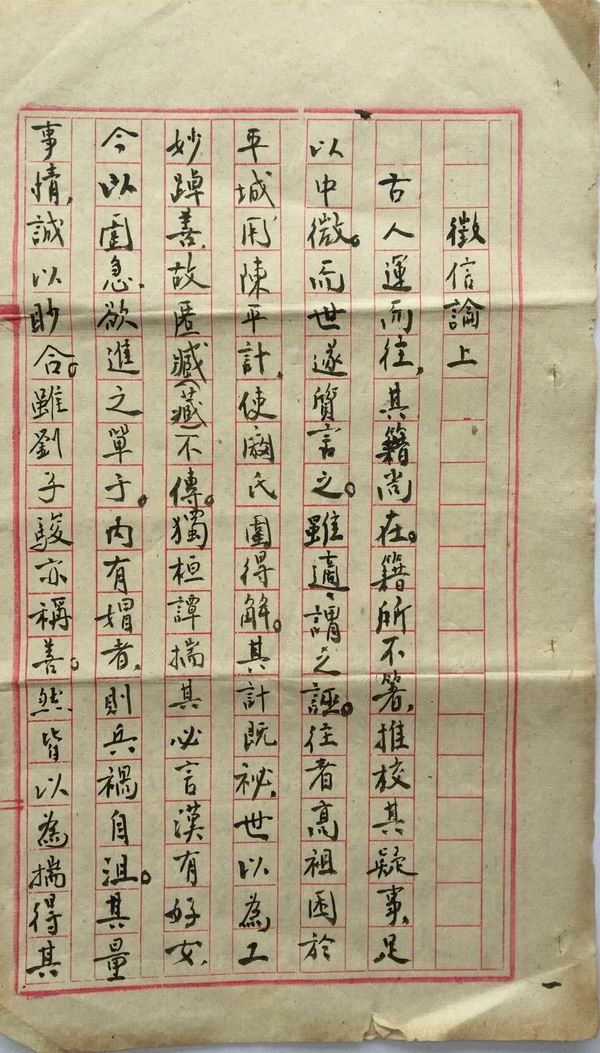 徵信論上
古人運而往，其籍尚在。籍所不箸，推校其疑事，足
以中微。而世遂質言之。雖適，謂之誣。往者高祖困於
平城，用陳平計，使閼氏圍得解。其計既祕，世以為工
妙踔善，故匿臧（藏）不傳。獨桓譚揣其必言漢有好女，
今以圍急，欲進之單于。內有媢者，則兵禍自沮。其量
事情，誠以眇合。雖劉子駿亦稱善。然皆以為揣得其
一